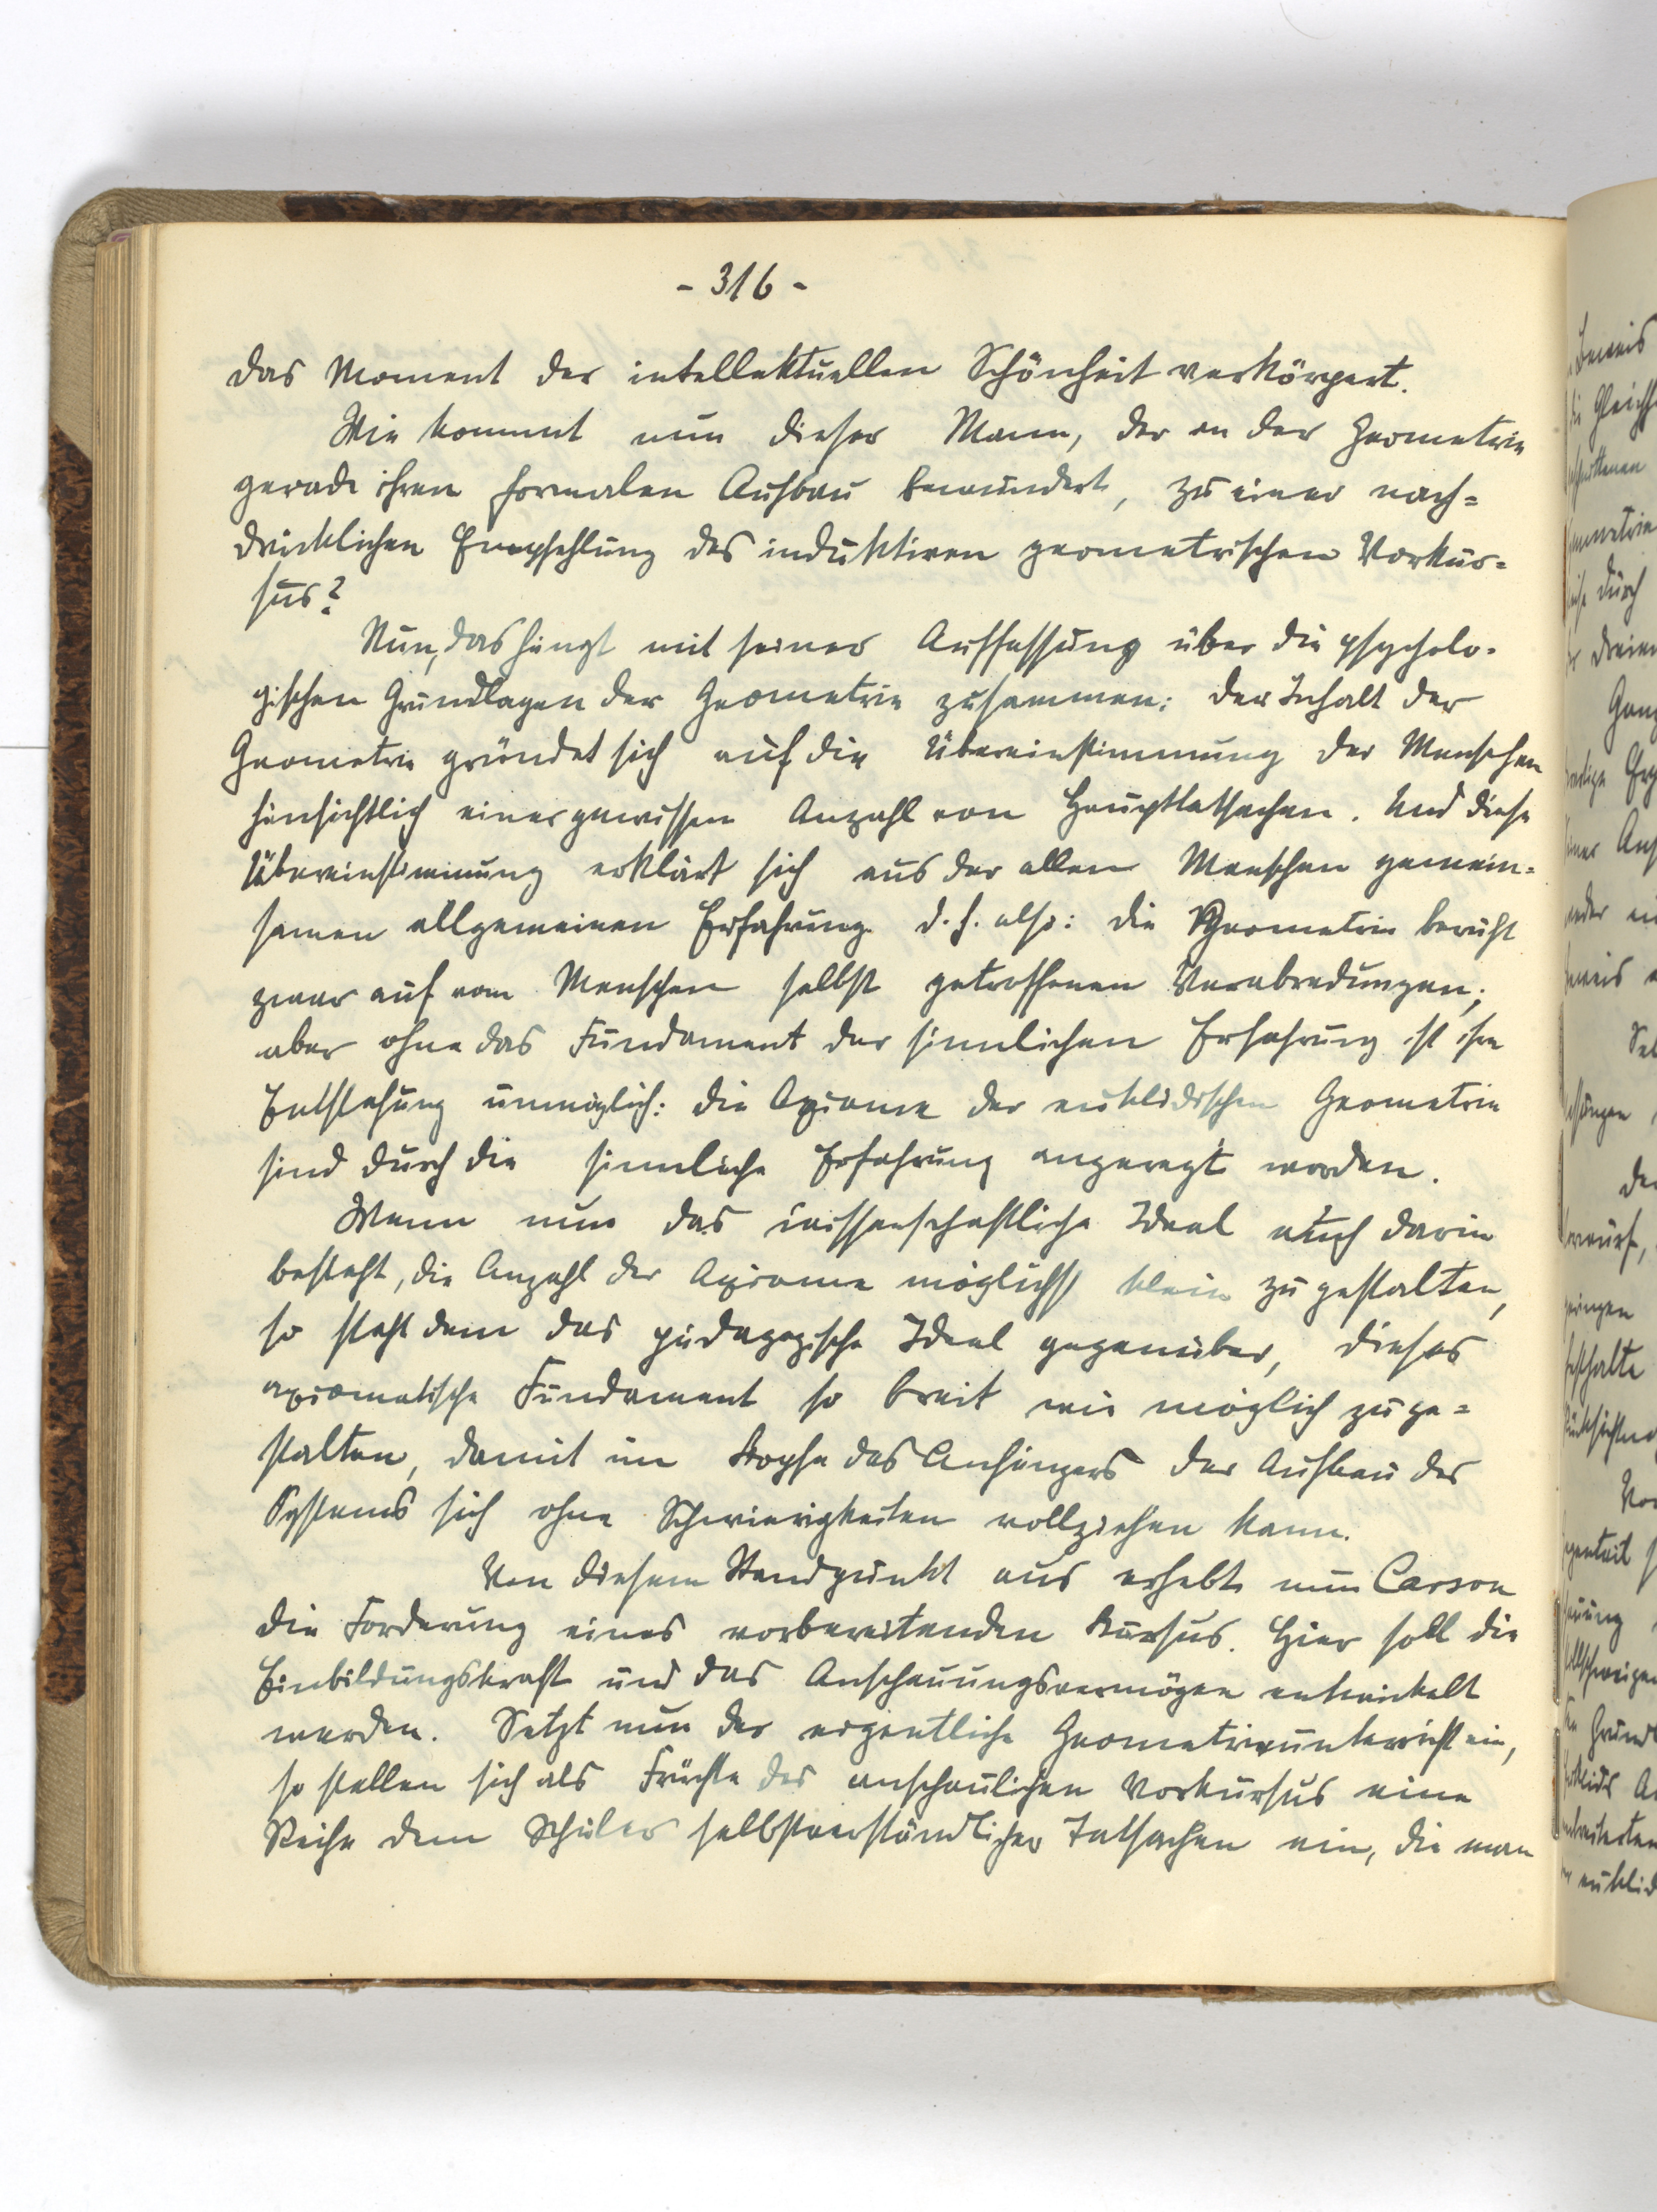 - 316 -
das Moment der intellektuellen Schönheit verkörpert.
Wie kommt nun dieser Mann, der an der Geometrie
gerade ihren formalen Aufbau bewundert, zu einer nach=
drücklichen Empfehlung des induktiven geometrischen Vorkur=
sus?
Nun, das hängt mit seiner Auffassung über die psycholo-
gischen Grundlagen der Geometrie zusammen: Der Inhalt der
Geometrie gründet sich auf die Übereinstimmung der Menschen
hinsichtlich einer gewissen Anzahl von Haupttatsachen. Und diese
Übereinstimmung erklärt sich aus der allen Menschen gemein=
samen allgemeinen Erfahrung. d. h. also: die Geometrie beruht
zwar auf vom Menschen selbst getroffenen Verabredungen;
aber ohne das Fundament der sinnlichen Erfahrung ist ihre
Entstehung unmöglich: die Axiome der euklidischen Geometrie
sind durch die sinnliche Erfahrung angeregt worden.
Wenn nun das wissenschaftliche Ideal auch darin
besteht, die Anzahl der Axiome möglichst klein zu gestalten,
so steht dem das pädagogische Ideal gegenüber, dieses
axiomatische Fundament so breit wie möglich zu ge=
stalten, damit im Kopfe des Anfängers der Aufbau des
Systems sich ohne Schwierigkeiten vollziehen kann.
Von diesem Standpunkt aus erhebt nun Carson
die Forderung eines vorbereitenden Kursus. Hier soll die
Einbildungskraft und das Anschauungsvermögen entwickelt
werden. Setzt nun der eigentliche Geometrieunterricht ein,
so stellen sich als Früchte des anschaulichen Vorkursus eine
Reihe dem Schüler selbstverständlicher Tatsachen ein, die man